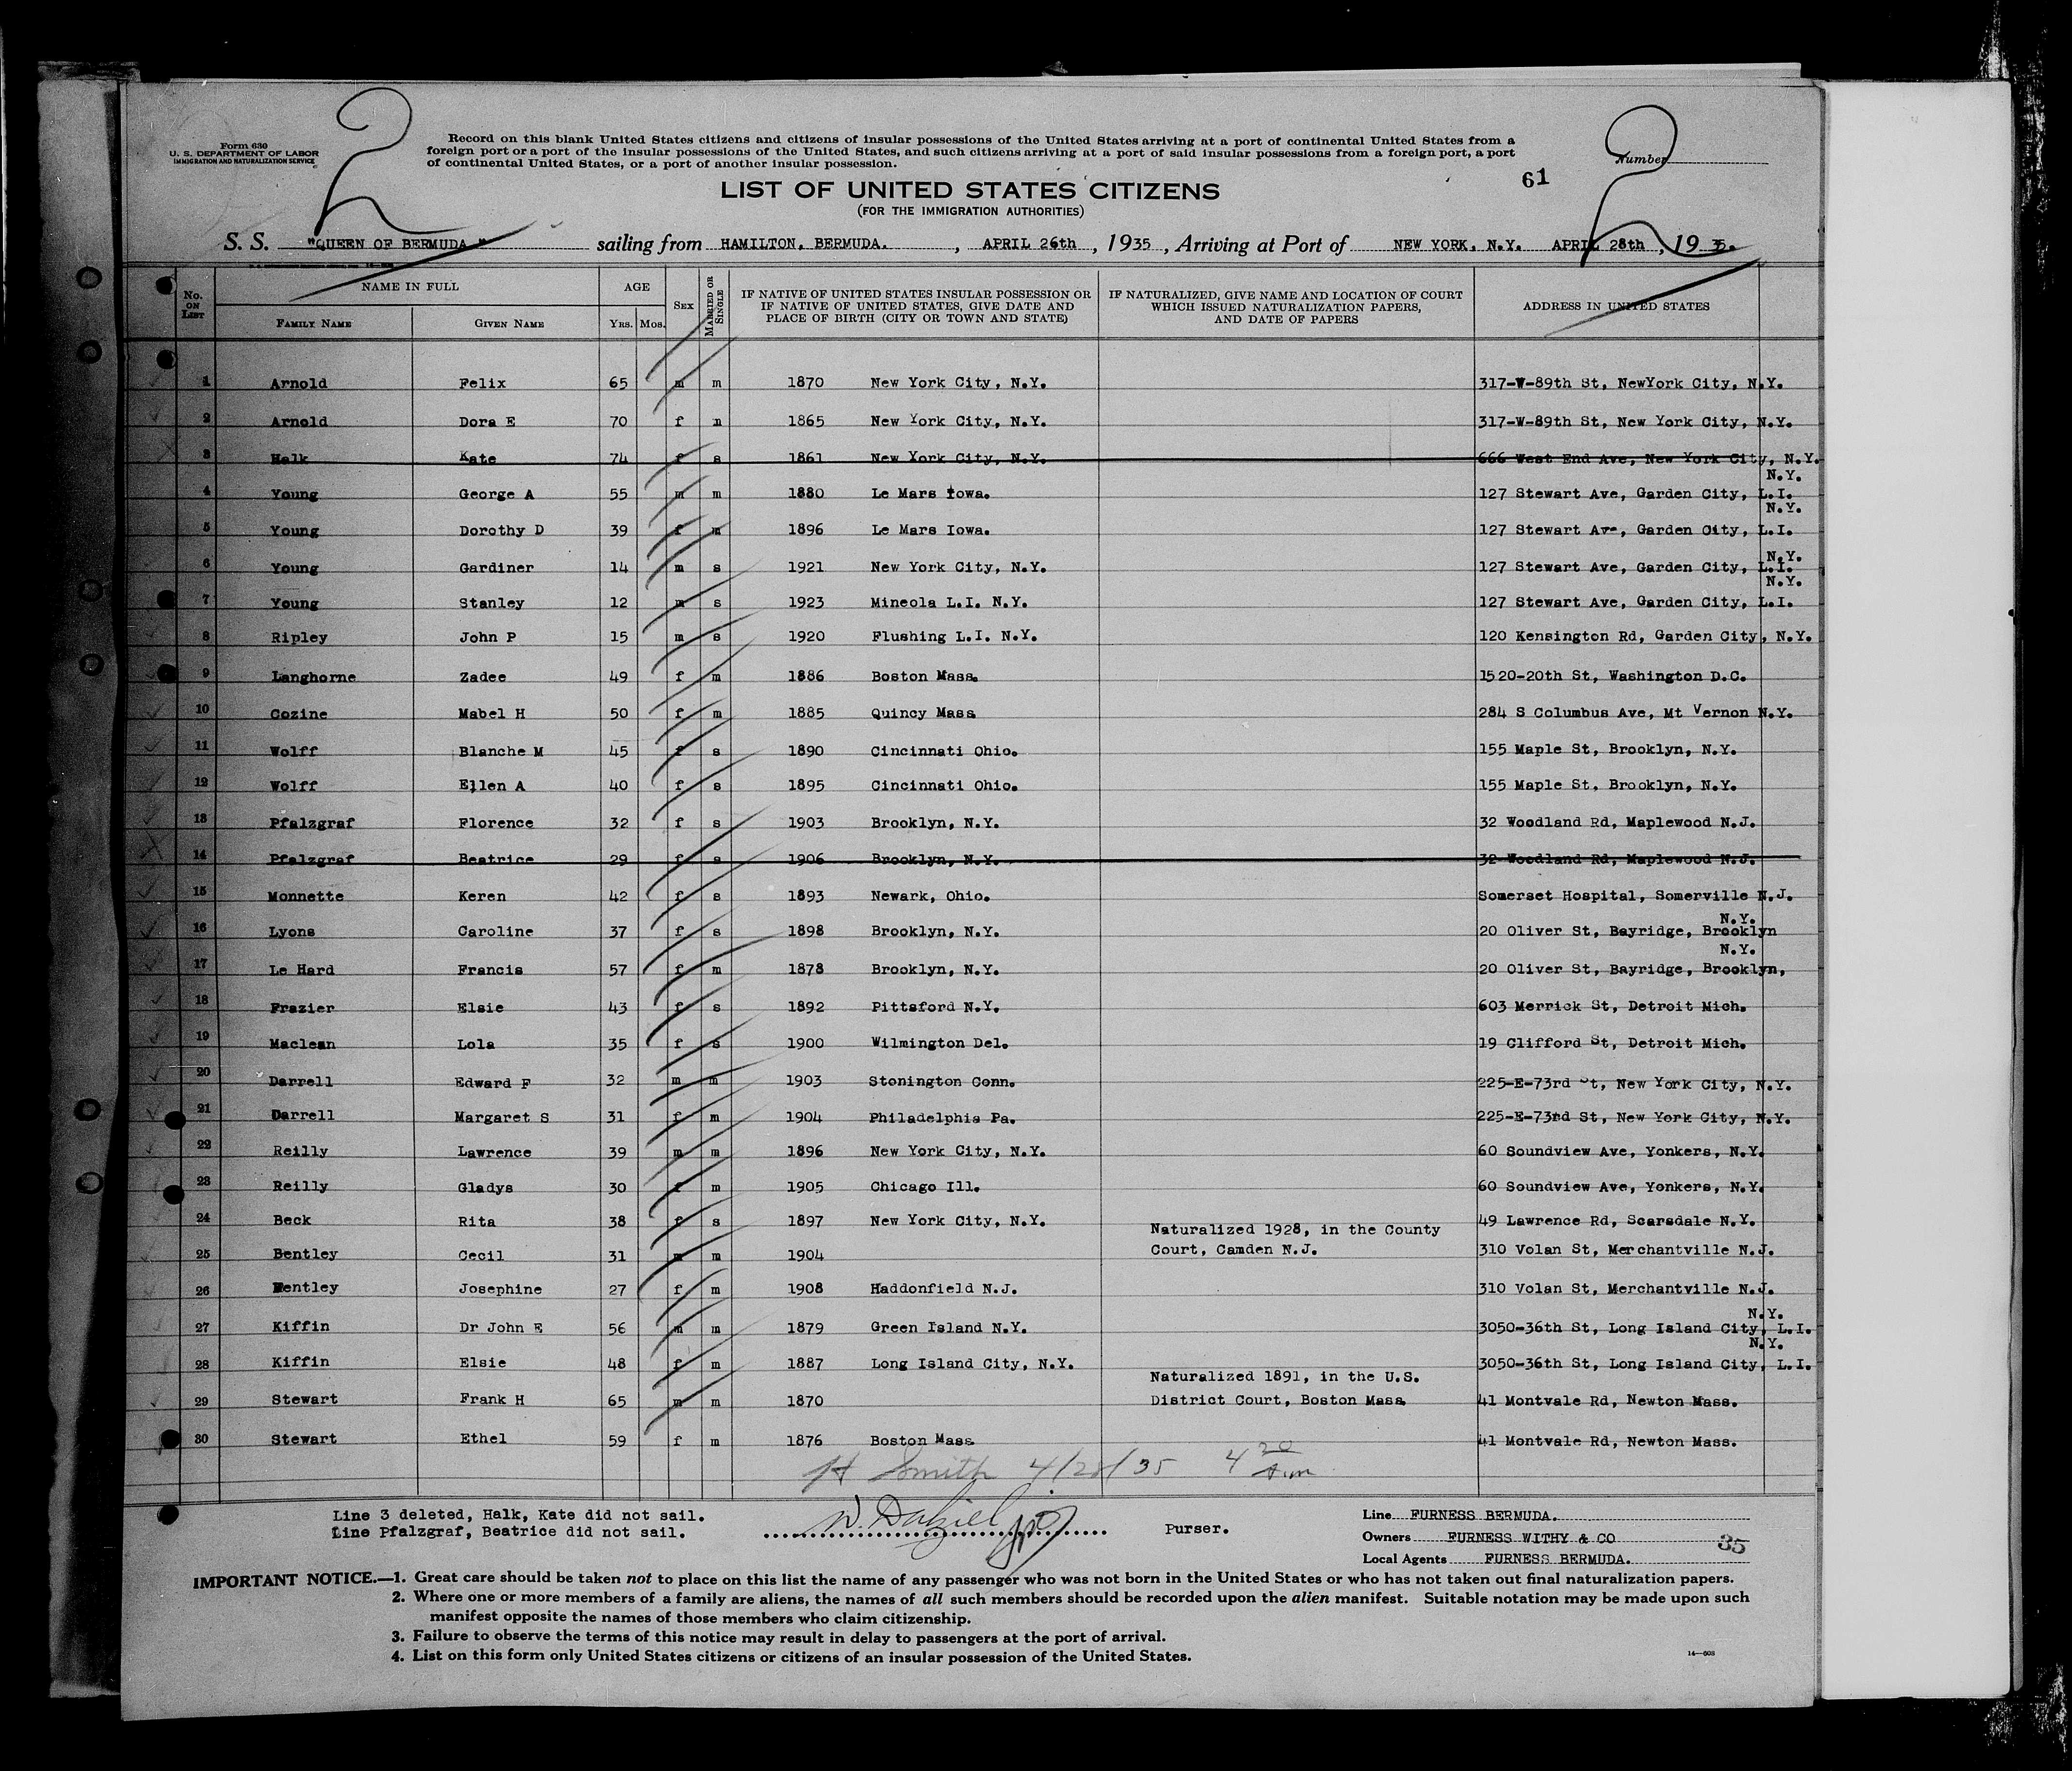 2
2
Form 630
U. S. DEPARTMENT OF LABOR
IMMIGRATION AND NATURALIZATION SERVICE
Record on this blank United States citizens and citizens of insular possessions of the United States arriving at a port of continental United States from a
foreign port or a port of the insular possessions of the United States, and such citizens arriving at a port of said insular possessions from a foreign port, a port
of continental United States, or a port of another insular possession.
Number
61
LIST OF UNITED STATES CITIZENS
(FOR THE IMMIGRATION AUTHORITIES)
S. S. "QUEEN OF BERMUDA " sailing from HAMILTON, BERMUDA. , APRIL 26th , 1935 , Arriving at Port of NEW YORK, N.Y. APRIL 28th , 19 35.
No. ON LIST
NAME IN FULL
FAMILY NAME
GIVEN NAME
AGE
YRS.
MOS.
SEX
MARRIED OR SINGLE
IF NATIVE OF UNITED STATES INSULAR POSSESSION OR
IF NATIVE OF UNITED STATES, GIVE DATE AND
PLACE OF BIRTH (CITY OR TOWN AND STATE)
IF NATURALIZED, GIVE NAME AND LOCATION OF COURT
WHICH ISSUED NATURALIZATION PAPERS,
AND DATE OF PAPERS
ADDRESS IN UNITED STATES
1 Arnold Felix 65 m m 1870 New York City, N.Y. 317-W-89th St, NewYork City, N.Y.
2 Arnold Dora E 70 f m 1865 New York City, N.Y. 317-W-89th St, New York City, N.Y.
3 Halk Kate 74 f s 1861 New York City, N.Y. 666 West End Ave, New York City, N.Y.
N.Y.
4 Young George A 55 m m 1880 Le Mars Iowa. 127 Stewart Ave, Garden City, L.I.
N.Y.
5 Young Dorothy D 39 f m 1896 Le Mars Iowa. 127 Stewart Ave, Garden City, L.I.
N.Y.
6 Young Gardiner 14 m s 1921 New York City, N.Y. 127 Stewart Ave, Garden City, L.I.
N.Y.
7 Young Stanley 12 m s 1923 Mineola L.I. N.Y. 127 Stewart Ave, Garden City, L.I.
8 Ripley John P 15 m s 1920 Flushing L.I. N.Y. 120 Kensington Rd, Garden City, N.Y.
9 Langhorne Zadee 49 f m 1886 Boston Mass. 1520-20th St, Washington D.C.
10 Cozine Mabel H 50 f m 1885 Quincy Mass 284 S Columbus Ave, Mt Vernon N.Y.
11 Wolff Blanche M 45 f s 1890 Cincinnati Ohio. 155 Maple St, Brooklyn, N.Y.
12 Wolff Ellen A 40 f s 1895 Cincinnati Ohio. 155 Maple St, Brooklyn, N.Y.
13 Pfalzgraf Florence 32 f s 1903 Brooklyn, N.Y. 32 Woodland Rd, Maplewood N.J.
14 Pfalzgraf Beatrice 29 f s 1906 Brooklyn, N.Y. 32 Woodland Rd, Maplewood N.J.
15 Monnette Keren 42 f s 1893 Newark, Ohio. Somerset Hospital, Somerville N.J.
N.Y.
16 Lyons Caroline 37 f s 1898 Brooklyn, N.Y. 20 Oliver St, Bayridge, Brooklyn
N.Y.
17 Le Hard Francis 57 f m 1878 Brooklyn, N.Y. 20 Oliver St, Bayridge, Brooklyn,
18 Frazier Elsie 43 f s 1892 Pittsford N.Y. 603 Merrick St, Detroit Mich.
19 Maclean Lola 35 f s 1900 Wilmington Del. 19 Clifford St, Detroit Mich.
20 Darrell Edward F 32 m m 1903 Stonington Conn. 225-E-73rd St, New York City, N.Y.
21 Darrell Margaret S 31 f m 1904 Philadelphia Pa. 225-E-73rd St, New York City, N.Y.
22 Reilly Lawrence 39 m m 1896 New York City, N.Y. 60 Soundview Ave, Yonkers, N.Y.
23 Reilly Gladys 30 f m 1905 Chicago Ill. 60 Soundview Ave, Yonkers, N.Y.
24 Beck Rita 38 f s 1897 New York City, N.Y. 49 Lawrence Rd, Scarsdale N.Y.
Naturalized 1928, in the County
25 Bentley Cecil 31 m m 1904 Court, Camden N.J. 310 Volan St, Merchantville N.J.
26 Bentley Josephine 27 f m 1908 Haddonfield N.J. 310 Volan St, Merchantville N.J.
N.Y.
27 Kiffin Dr John E 56 m m 1879 Green Island N.Y. 3050-36th St, Long Island City, L.I.
N.Y.
28 Kiffin Elsie 48 f m 1887 Long Island City, N.Y. 3050-36th St, Long Island City, L.I.
Naturalized 1891, in the U.S.
29 Stewart Frank H 65 m m 1870 District Court, Boston Mass. 41 Montvale Rd, Newton Mass.
30 Stewart Ethel 59 f m 1876 Boston Mass 41 Montvale Rd, Newton Mass.
H Smith 4/28/35 4 20
Line 3 deleted, Halk, Kate did not sail.
Line Pfalzgraf, Beatrice did not sail.
W. Dalziel Purser.
Line FURNESS BERMUDA.
Owners FURNESS WITHY & CO
Local Agents FURNESS BERMUDA.
35
IMPORTANT NOTICE.—1. Great care should be taken not to place on this list the name of any passenger who was not born in the United States or who has not taken out final naturalization papers.
2. Where one or more members of a family are aliens, the names of all such members should be recorded upon the alien manifest. Suitable notation may be made upon such
manifest opposite the names of those members who claim citizenship.
3. Failure to observe the terms of this notice may result in delay to passengers at the port of arrival.
4. List on this form only United States citizens or citizens of an insular possession of the United States.
14—608